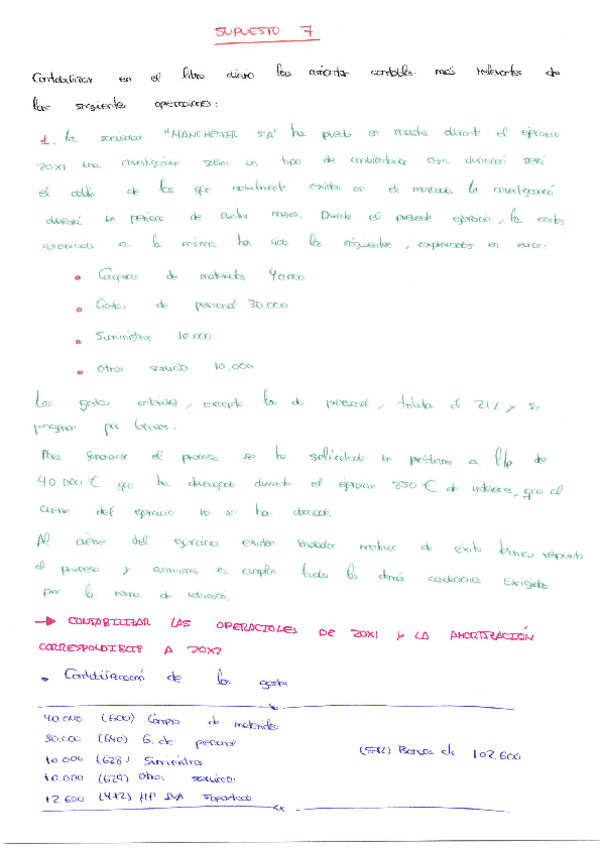 SUPUESTO 7
Contabilizar en el libro diario los asientos contables más relevantes de
las siguientes operaciones:
1. La sociedad "MANCHESTER SA" ha puesto en marcha durante el ejercicio
20X1 una investigación sobre un tipo de cuya duración será
el doble de los que actualmente existen en el mercado. La investigación
durará un periodo de cuatro meses. Durante el presente ejercicio, los costes
asociados a la misma han sido los siguientes, expresados en euros:
• Compras de materiales 40.000
• Gastos de personal 30.000
• Suministros 10.000
• Otros servicios 10.000
Los gastos anteriores, excepto los de personal, tributan al 21% y se
pagaron por bancos.
Para financiar el proceso se ha solicitado un préstamo a l/p de
40.000 € que ha devengado durante el ejercicio 350 € de intereses, que al
cierre del ejercicio no se han abonado.
Al cierre del ejercicio existen fundados motivos de éxito técnico respecto
al proceso y asimismo se cumplen todas las demás condiciones exigidas
por la norma de valoración.
→ CONTABILIZAR LAS OPERACIONES DE 20X1 Y LA AMORTIZACIÓN
CORRESPONDIENTE A 20X2
• Contabilización de los gastos
40.000 (600) Compra de materiales
30.000 (640) G. de personal
(572) Bancos c/c 102.600
10.000 (628) Suministros
10.000 (629) Otros servicios
12.600 (472) HP IVA Soportado